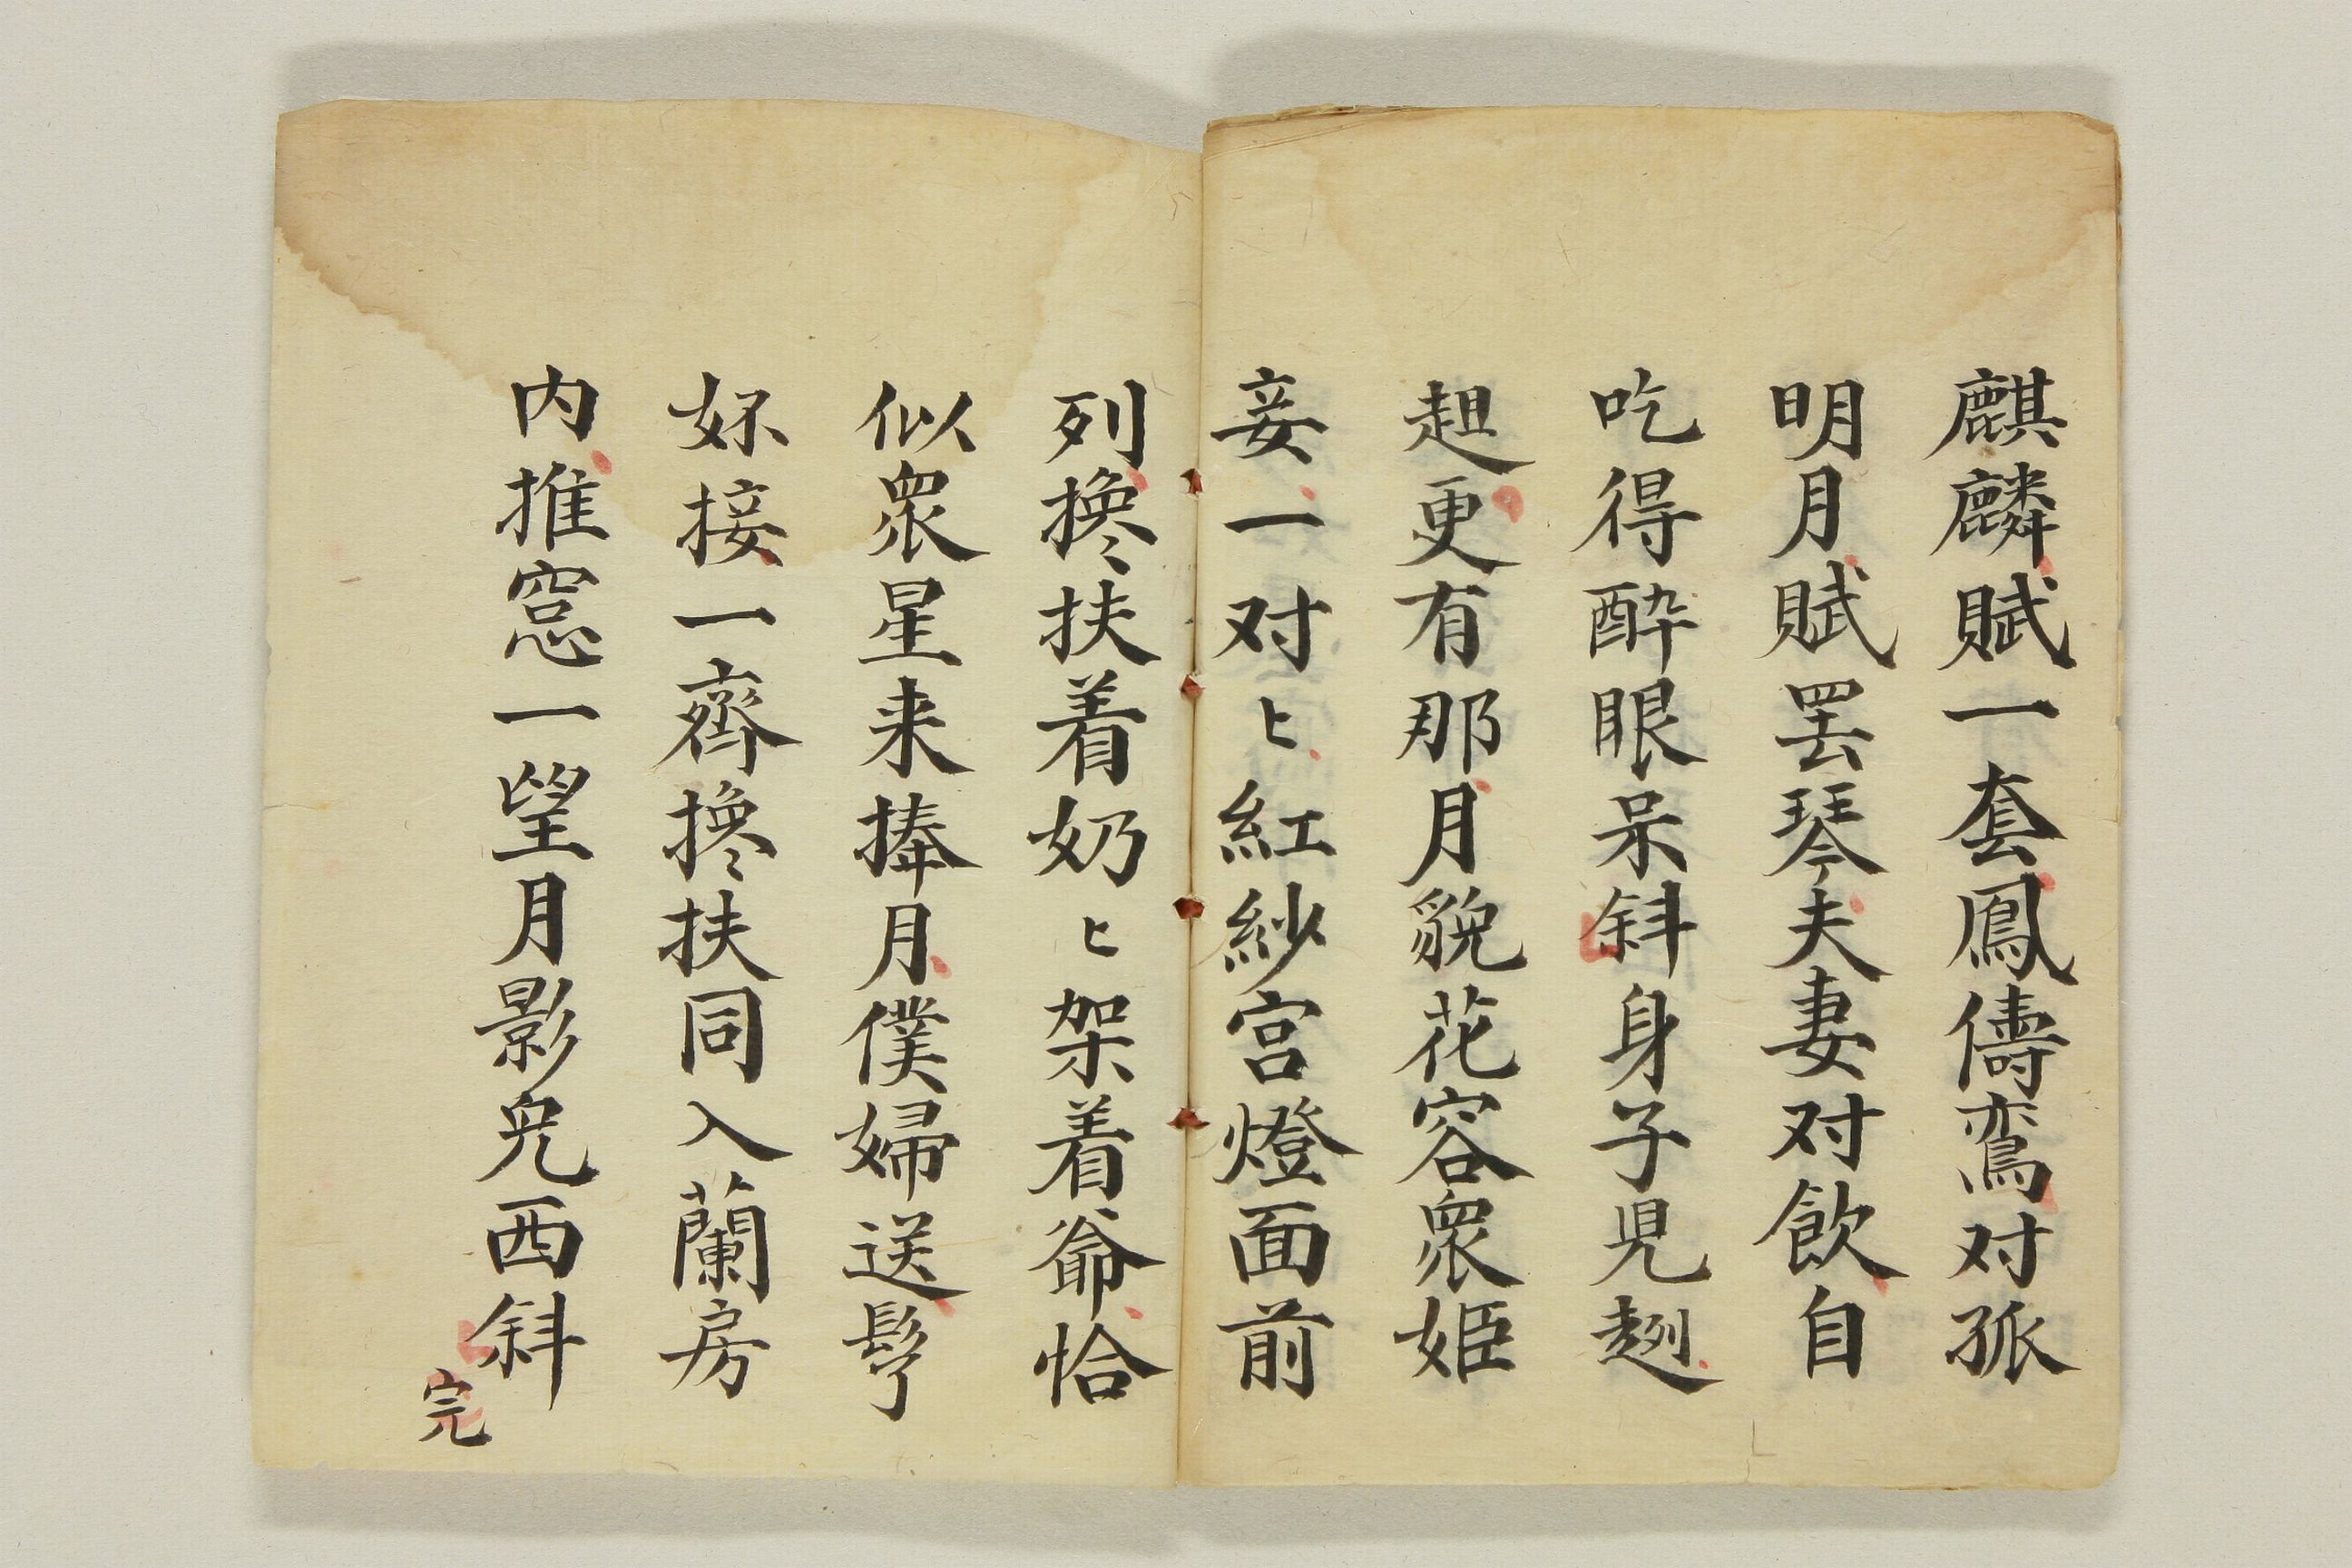 麒麟賦一套鳳儔鸞对孤
明月賦罢琴夫妻对飲自
吃得酔眼呆斜身子児趔
趄更有那月貌花容衆姬
妾一对ヒ紅紗宫燈面前
列搀扶着奶ヒ架着爺恰
似衆星来捧月僕婦送髩
妳接一齊搀扶同入蘭房
内推窓一望月影児西斜
完